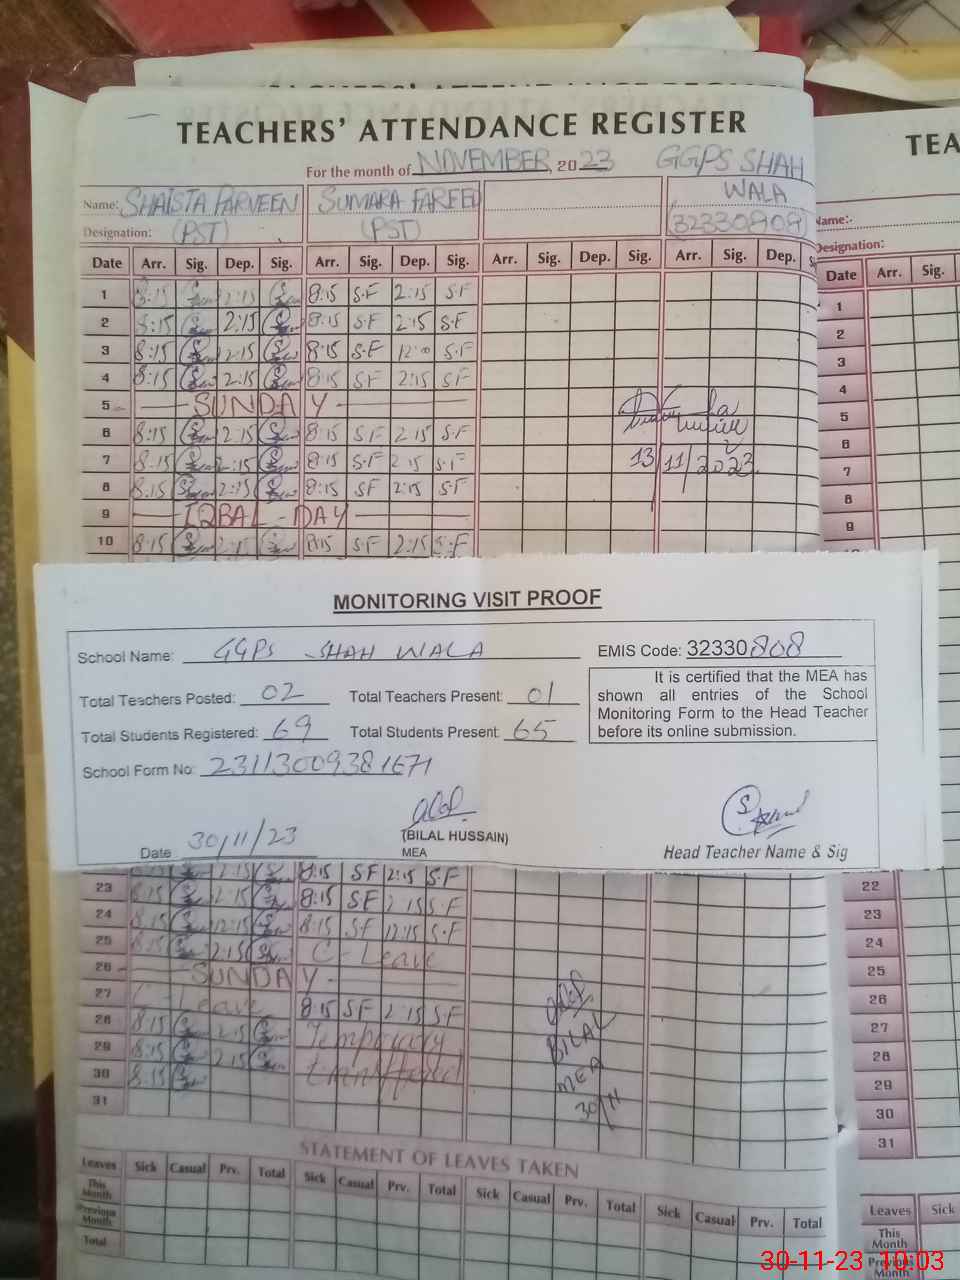 TEACHERS' ATTENDANCE REGISTER
For the month of NOVEMBER, 2023 GGPS SHAH WALA (32330808)
Name: SHAISTA PARVEEN SUMARA FAREED
Designation: (PST) (PST)
Date Arr. Sig. Dep. Sig. Arr. Sig. Dep. Sig. Arr. Sig. Dep. Sig. Arr. Sig. Dep.
1 8:15 2:15 8:15 S.F 2:15 S.F
2 8:15 2:15 8:15 S.F 2:15 S.F
3 8:15 2:15 8:15 S.F 12:00 S.F
4 8:15 2:15 8:15 SF 2:15 SF
5 SUNDAY
6 8:15 2:15 8:15 S.F 2:15 S.F
7 8:15 2:15 8:15 S.F 2:15 S.F
13/11/2023
8 8:15 2:15 8:15 SF 2:15 S.F
9 IQBAL DAY
10 8:15 2:15 8:15 S.F 2:15 S.F
MONITORING VISIT PROOF
School Name: GGPS SHAH WALA EMIS Code: 32330808
Total Teachers Posted: 02 Total Teachers Present: 01
Total Students Registered: 69 Total Students Present: 65
It is certified that the MEA has
shown all entries of the School
Monitoring Form to the Head Teacher
before its online submission.
School Form No:
Date 30/11/23
(BILAL HUSSAIN)
MEA
Head Teacher Name & Sig
2:15 8:15 SF 2:15 S.F
23 8:15 2:15 8:15 SF 2:15 S.F
24 8:15 12:15 8:15 S.F 12:15 S.F
25 8:15 2:15 C-Leave
26 SUNDAY
27 C-Leave 8:15 SF 2:15 S.F
28 8:15 2:15 Temporary
29 8:15 2:15 transfered
30 8:15
31
BILAL
MEA
30/11
STATEMENT OF LEAVES TAKEN
Leaves Sick Casual Prv. Total Sick Casual Prv. Total Sick Casual Prv. Total Sick Casual Prv. Total
This Month
Previous Month
Total
TEA
Name:-
Designation:
Date Arr. Sig.
1
2
3
4
5
6
7
8
9
22
23
24
25
26
27
28
29
30
31
Leaves Sick
This Month
Previous Month
30-11-23 10:03